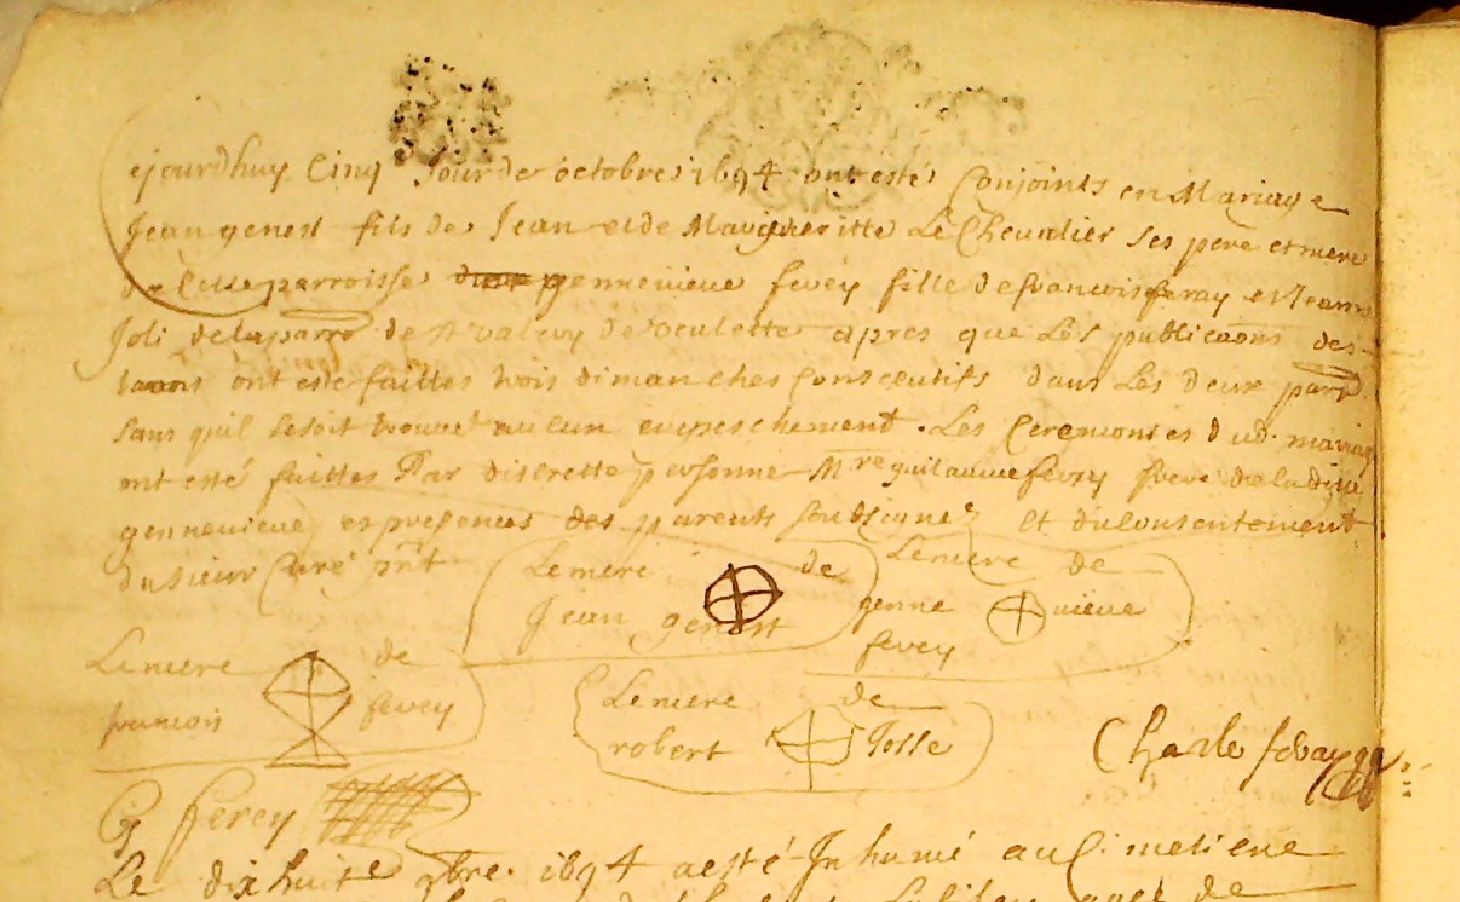 Cejourdhuy Cinq Jour de octobre 1694 ont estés Conjoints en Mariage
Jean genest fils de Jean et de Margueritte Le Chevalier ses pere et mere
de Cette parroisse gennevieve ferey fille de francois feray et Jeanne
Joli de la parro de st valery de veulette apres que Les publicaons des
baons ont este faittes trois dimanches Consecutifs dans Les deux parr
sans quil se soit trouvé aucun empeschement. Les Ceremonies dud. mariag
ont esté faittes Par discrette personne Mre guilaume ferey frere de la ditte
gennevieve es presences des parents soubsignez et du Consentement
du sieur Curé pnt
Le merc de Jean genest
Le merc de genneuieue ferey
Le merc de francois ferey
Le merc de robert Josse
Charle
G ferey
Le dixhuit 9bre. 1694 a esté Inhumé au Cimetiere